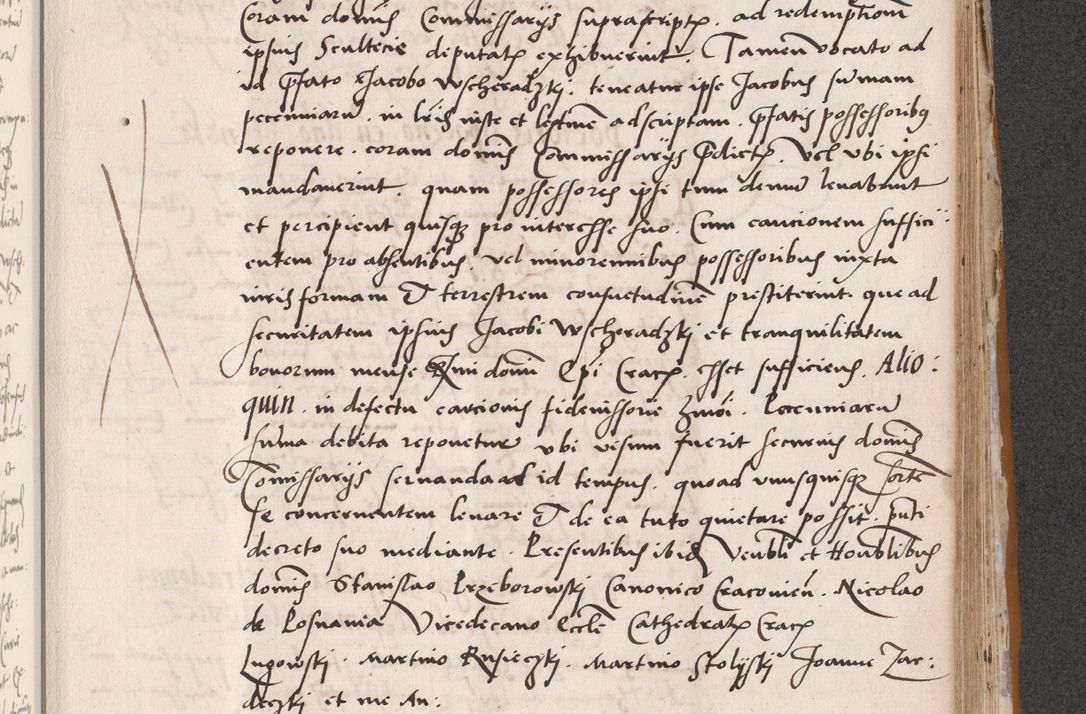 Coram domīs Commissarijs suprascriptꝭ. ad redemptionē
ipsius Scultecie deputatꝭ exhibuerint. Tamen vocato ad
id p̄fato Jacobo Wscheradzkj. teneatur ipse Jacobus sūmam
pecuniarū. in lr̄is niste et adscriptam. p̄fatis possessoribꝰ
reponere. coram domīs Commissarijs p̄dictꝭ. Vel vbi ipsi
mandauerint. quam possessores ipsi tum demū leuabunt
et percipient quisqꝫ pro interesse suo. Cum caucionem suffici:
entem pro absentibus. vel minorennibus possessoribus iuxta
iuris formam & terrestrem consuetudinē prestiterint. que ad
securitatem ipsius Jacobi Wscheradzkj et tranquilitatem
bonorum mense domī Ep̄i Cracꝭ. esset sufficiens. Alio:
quin. in defectu caucionis fideiussorie Pecuniarū
sūma debita reponetur vbi visum fuerit securius domīs
Comissarijs seruanda ad id tempus. quoad vnusquisqꝫ sortē
se concernentem leuare & de ea tuto quietare possit. pn̄ti
decreto suo mediante. Presentibus ibidē Venēbli et Honblibus
domīs Stanislao Przeborowskj Canonico Cracouień. Nicolao
de Posnania Vicedecano Eccle͞ Cathedratꝭ Cracꝭ
Lugowskj. Martino Rusieczkj. Martino Stolyskj Joanne Zar:
deczkj et me An: